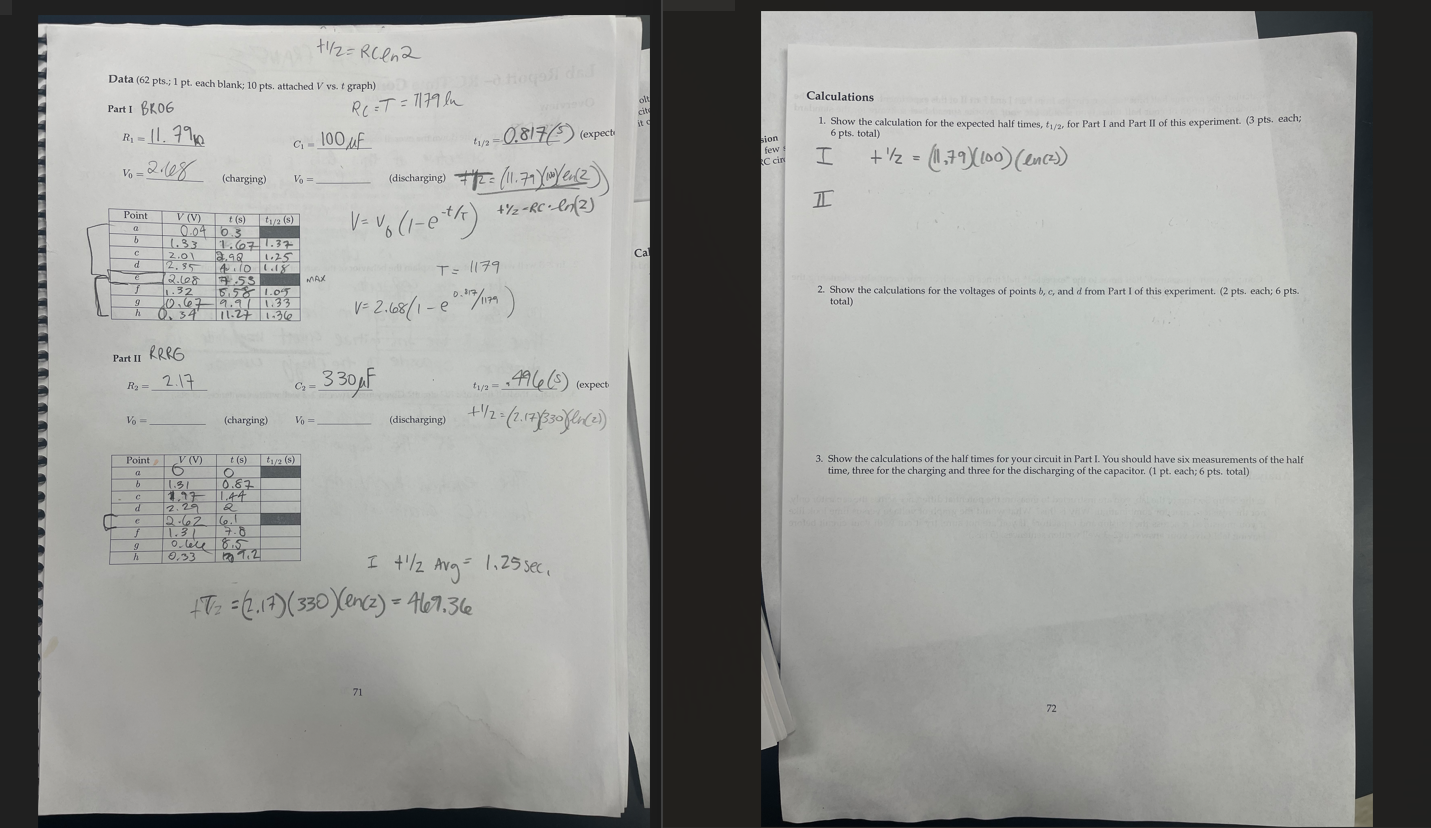 t1/2 = RCln2
Data (62 pts.; 1 pt. each blank; 10 pts. attached V vs. t graph)
Part I BROG
RC = T = 1179
R₁ = 11.79
C₁ = 100 µF
t₁/₂ = 0.817(s) (expect
V₀ = 2.68 (charging) V₀ = (discharging)
t1/2 = (11.79)(100)(ln2)
t1/2 = RC·ln(2)
V = V₀(1-e^-t/τ)
Point V (V) t (s) t₁/₂ (s)
a 0.04 0.3
b 1.33 1.67 1.37
c 2.01 2.92 1.25
d 2.35 4.10 1.18
e 2.68 7.53 MAX
f 1.32 8.58 1.05
g 0.67 9.91 1.33
h 0.34 11.27 1.36
T = 1179
V = 2.68(1 - e^0.817/1179)
Part II RRRG
R₂ = 2.17
C₂ = 330 µF
t₁/₂ = .496(s) (expect
V₀ = (charging) V₀ = (discharging)
t1/2 = (2.17)(330)(ln(2))
Point V (V) t (s) t₁/₂ (s)
a 0 0
b 1.31 0.87
c 1.97 1.44
d 2.29 2
e 2.62 6.1
f 1.31 7.8
g 0.66 8.5
h 0.33 9.2
I t1/2 Avg = 1.25 sec.
= (2.17)(330)(ln(2) = 469.36
71
Calculations
1. Show the calculation for the expected half times, t₁/₂, for Part I and Part II of this experiment. (3 pts. each;
6 pts. total)
I t1/2 = (11.79)(100)(ln(2))
II
2. Show the calculations for the voltages of points b, c, and d from Part I of this experiment. (2 pts. each; 6 pts.
total)
3. Show the calculations of the half times for your circuit in Part I. You should have six measurements of the half
time, three for the charging and three for the discharging of the capacitor. (1 pt. each; 6 pts. total)
72
sion
few
RC cir
Cal